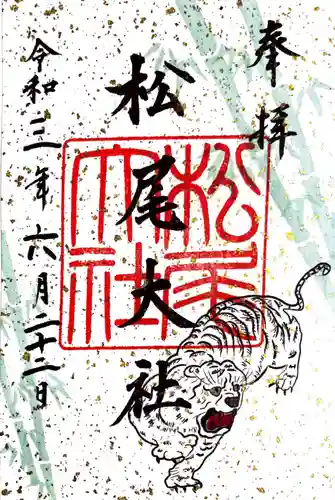 奉拝
松尾大社
令和三年六月二十二日
松尾大社